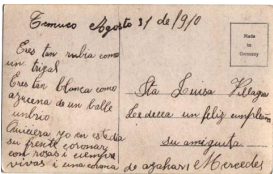 Temuco Agosto 31 de 1910
Made
in
Germany
Eres tan rubia como
un trigal
Eres tan blanca como
azucena de un balle
unbrio
Quiciera yo en este dia
su frente coronar
con rosas i ciempre
vivas i una corona de azahares
Sta Luisa Villagra
Le decea un feliz cumpleaños
su amiguita
Mercedes